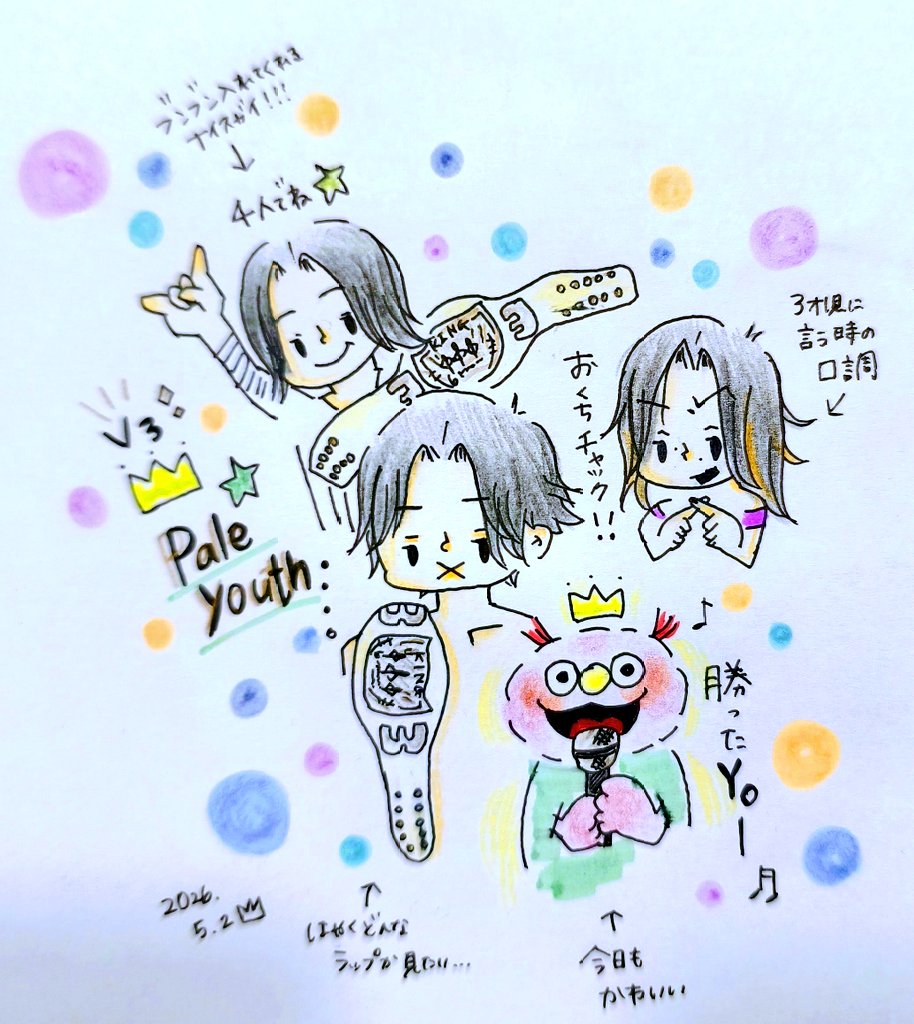 ブンブン入れてくれる
ナイスガイ!!!
↓
4人でね
3才児に
言う時の
口調
おくちチャック!!
V3
Pale
youth
KING
KING
勝ったYoー
2026.
5.2
↑
はやくどんな
ラップか見たい…
↑
今日も
かわいい